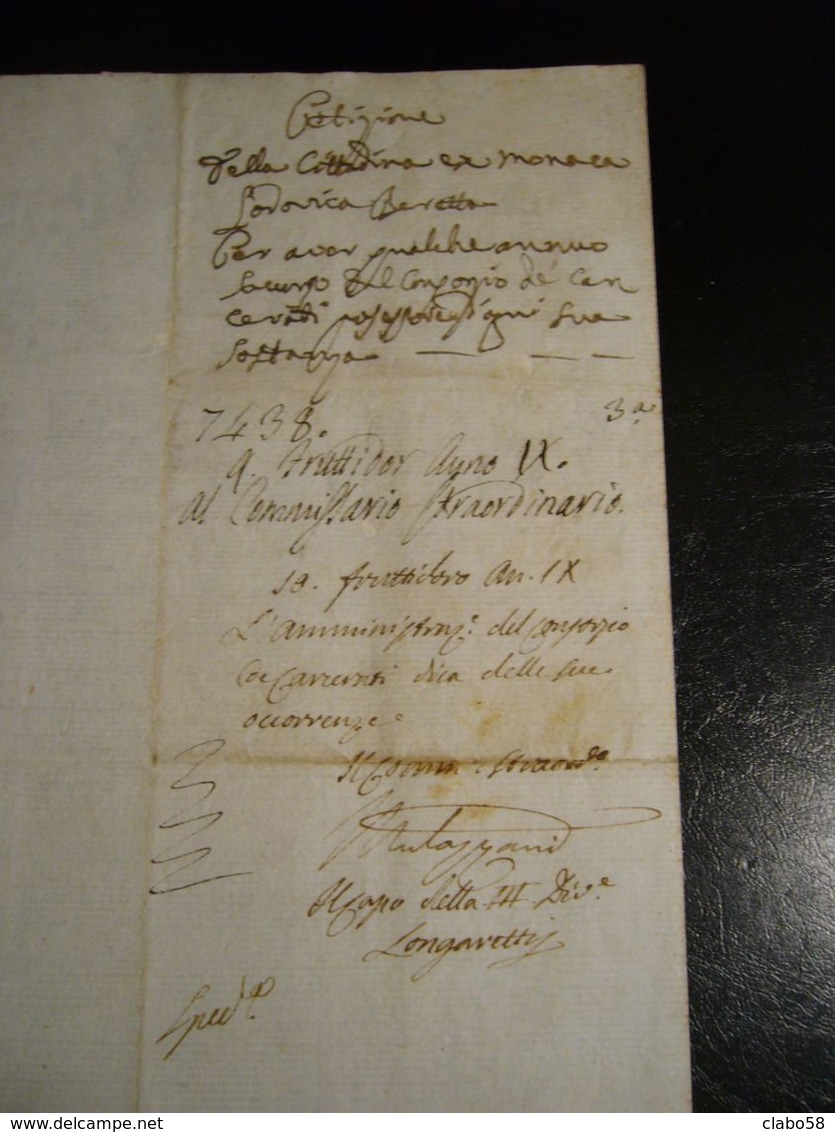 Petizione
della Cittadina ex monaca
Lodovica Beretta
Per aver qualche annuo
socorso dal Consorzio de' Car
cerati possessore di ogni sua
sostanza
7438. 3ª
9. Fruttidor Anno IX.
Al Commissario Straordinario.
10. fruttidoro An. IX
L'amministrazᵉ. del Consorzio
de Carcerati dica delle sue
occorrenze
Il Comm: Straordº.
Il Capo della III Divᵉ.
Longaretti
Spedª.
delcampe.net
clabo58